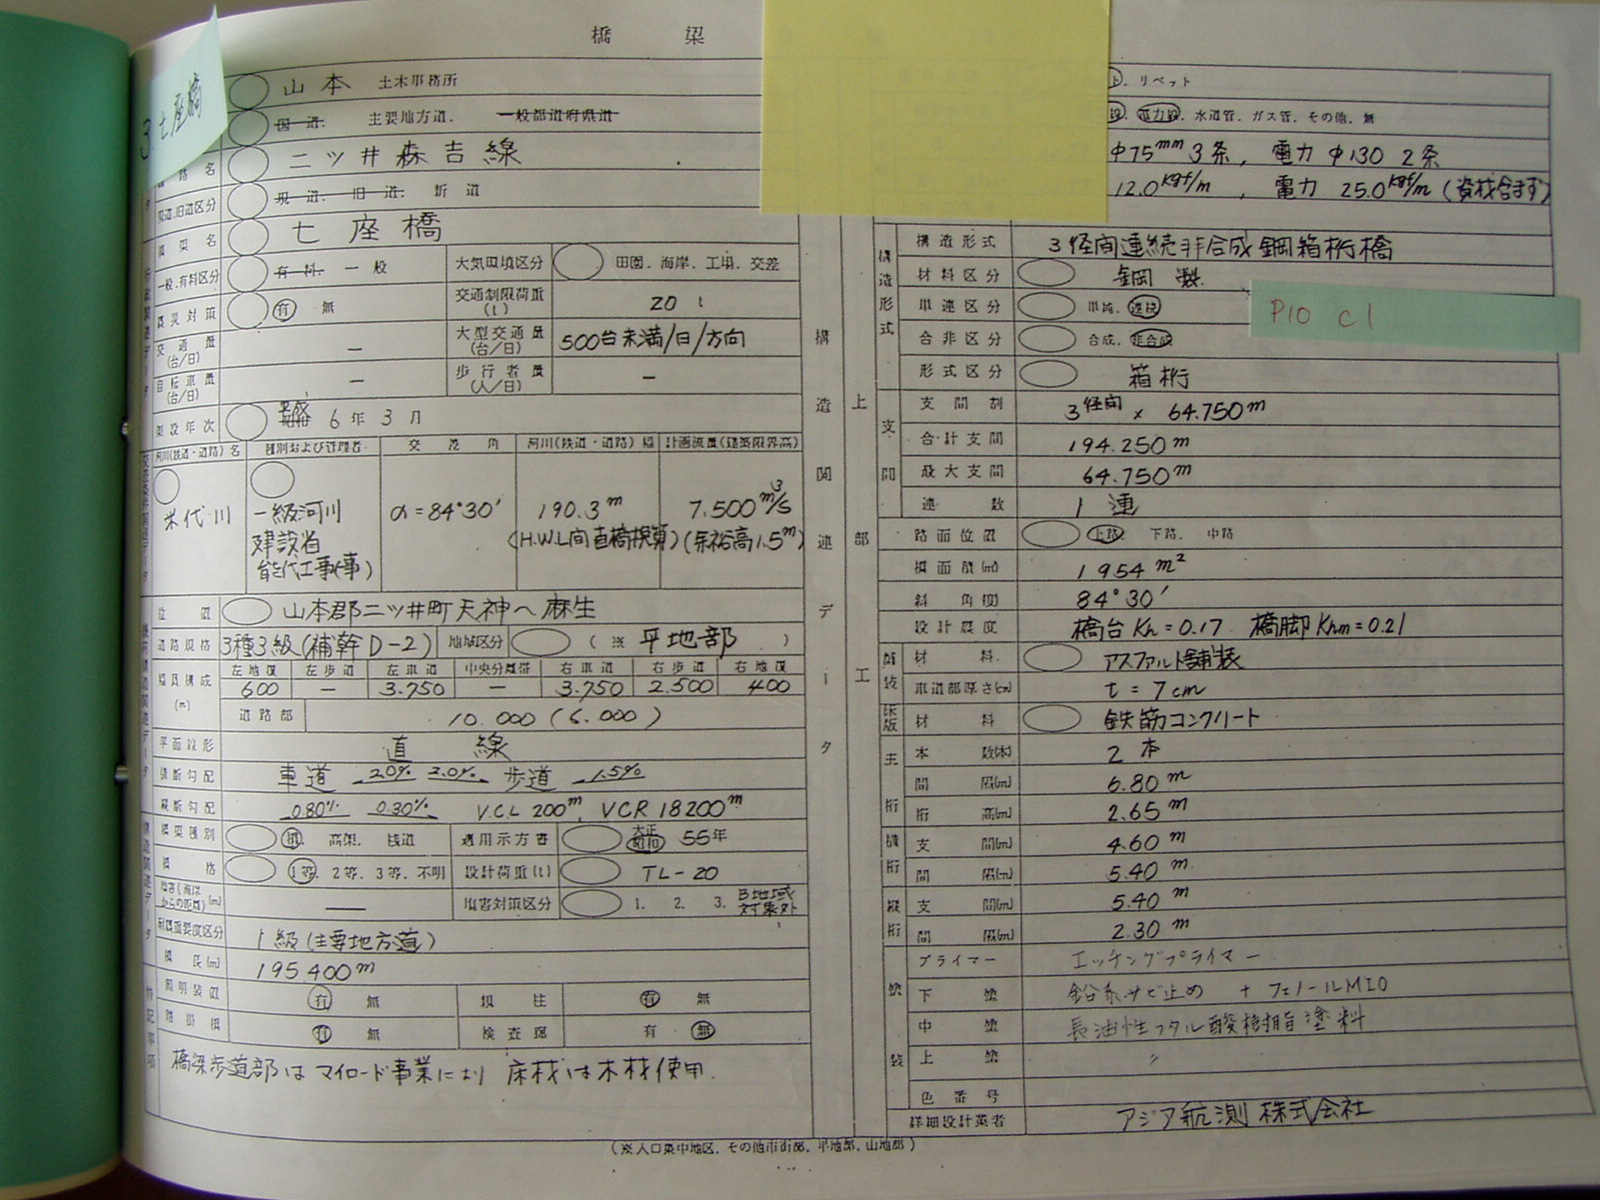 橋 梁
3 七座橋
山本 土木事務所
国道. 主要地方道. 一般都道府県道
路線名 二ツ井森吉線
現道.旧道区分 現道. 旧道. 新道
橋梁名 七座橋
一般.有料区分 有料. 一般 大気環境区分 田園. 海岸. 工場. 交差
震災対策 有 無 交通制限荷重(t) 20 t
交通量(台/日) ー 大型交通量(台/日) 500台未満/日/方向
自転車量(台/日) ー 歩行者量(人/日) ー
架設年次 平成 昭和 6年3月
河川(鉄道・道路)名 種別および管理者 交差角 河川(鉄道・道路)幅 計画流量(建築限界高)
米代川 一級河川 α=84°30′ 190.3m 7.500m³/s
建設省 (H.W.L間直橋換算) (余裕高1.5m)
能代工事(事)
位置 山本郡二ツ井町天神へ麻生
道路規格 3種3級(補幹D-2) 地域区分 (※ 平地部 )
幅員構成(m) 左地覆 左歩道 左車道 中央分離帯 右車道 右歩道 右地覆
600 ー 3.750 ー 3.750 2.500 400
道路部 10.000 (6.000)
平面線形 直線
横断勾配 車道 2.0% 2.0% 歩道 1.5%
縦断勾配 0.80% 0.30% V.C.L 200m, VCR 18200m
橋梁種別 橋. 高架. 桟道 適用示方書 大正 昭和 55年
橋格 1等. 2等. 3等. 不明 設計荷重(t) TL-20
塩害(海岸からの距離)(m) ー 塩害対策区分 1. 2. 3. B地域 対象外
耐震重要度区分 1級(主要地方道)
橋長(m) 195.400m
照明装置 有 無 親柱 有 無
踏掛版 有 無 検査路 有 無
橋梁歩道部は マイロード事業により 床材は木材使用.
(※人口集中地区, その他市街部, 平地部, 山地部)
構造関連データ
上部工
リベット
電力線. 水道管. ガス管. その他. 無
φ75mm 3条, 電力 φ130 2条
12.0kgf/m, 電力 25.0kgf/m (資材含まず)
構造形式 構造形式 3径間連続非合成鋼箱桁橋
材料区分 鋼製
単連区分 単純. 連続
P10 c1
合非区分 合成. 非合成
形式区分 箱桁
支間 支間割 3径間 × 64.750m
合計支間 194.250m
最大支間 64.750m
連数 1連
路面位置 上路. 下路. 中路
橋面積(㎡) 1954 m²
斜角(度) 84°30′
設計震度 橋台 Kh=0.17 橋脚 Khm=0.21
舗装 材料 アスファルト舗装
車道部厚さ(cm) t = 7cm
床版 材料 鉄筋コンクリート
主桁 本数(本) 2本
間隔(m) 6.80 m
桁高(m) 2.65 m
横桁 支間(m) 4.60 m
間隔(m) 5.40 m
縦桁 支間(m) 5.40 m
間隔(m) 2.30 m
塗装 プライマー エッチングプライマー
下塗 鉛系サビ止め + フェノールMIO
中塗 長油性フタル酸樹脂塗料
上塗 〃
色番号
詳細設計業者 アジア航測株式会社